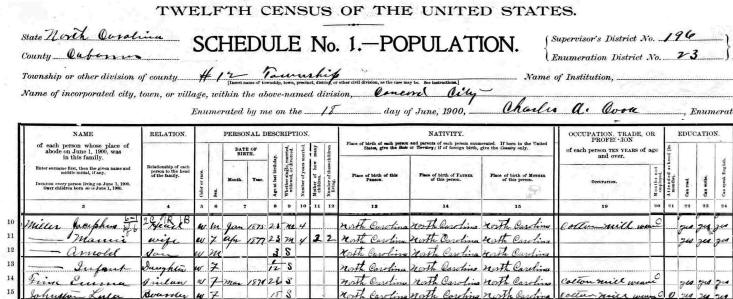 TWELFTH CENSUS OF THE UNITED STATES.
State North Carolina
County Cabarrus
SCHEDULE No. 1.—POPULATION.
Supervisor's District No. 196
Enumeration District No. 23
Township or other division of county #12 Township Name of Institution,
[Insert name of township, town, precinct, district, or other civil division, as the case may be. See instructions.]
Name of incorporated city, town, or village, within the above-named division, Concord City
Enumerated by me on the 15 day of June, 1900, Charles A. Cook Enumerat
NAME RELATION. PERSONAL DESCRIPTION. NATIVITY. OCCUPATION, TRADE, OR PROFESSION EDUCATION.
of each person whose place of abode on June 1, 1900, was in this family.
Enter surname first, then the given name and middle initial, if any.
INCLUDE every person living on June 1, 1900. OMIT children born since June 1, 1900.
Relationship of each person to the head of the family.
DATE OF BIRTH.
Month. Year.
Place of birth of each person and parents of each person enumerated. If born in the United States, give the State or Territory; if of foreign birth, give the Country only.
Place of birth of this PERSON. Place of birth of FATHER of this person. Place of birth of MOTHER of this person.
of each person TEN YEARS of age and over.
OCCUPATION.
3 4 5 6 7 8 9 10 11 12 13 14 15 19 20 21 22 23 24
10 Miller Josephus Head W M Jan 1875 25 M 4 North Carolina North Carolina North Carolina cotton mill 0 yes yes yes
11 Mamie wife W F Apr 1877 23 M 4 2 2 North Carolina North Carolina North Carolina yes yes yes
12 Arnold Son W M 3 S North Carolina North Carolina North Carolina
13 Infant Daughter W F S North Carolina North Carolina North Carolina
14 Emma W F S North Carolina North Carolina North Carolina cotton mill yes yes yes
15 Johnston Boarder W F 18 S North Carolina North Carolina North Carolina cotton mill 0 yes yes yes